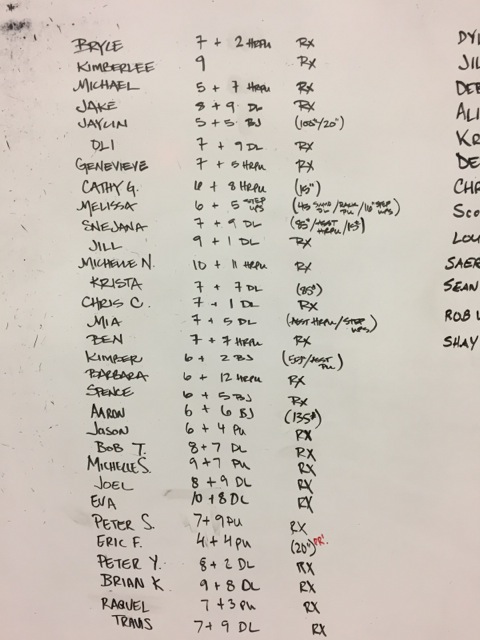 BRYCE 7 + 2 HRPU RX
KIMBERLEE 9 RX
MICHAEL 5 + 7 HRPU RX
JAKE 8 + 9 DL RX
JAYLIN 5 + 5 BJ (100#/20")
OLI 7 + 9 DL RX
GENEVIEVE 7 + 5 HRPU RX
CATHY G. 6 + 8 HRPU (15")
MELISSA 6 + 5 STEP UPS
SNEJANA 7 + 9 DL
JILL 9 + 1 DL RX
MICHELLE N. 10 + 11 HRPU RX
KRISTA 7 + 7 DL (85#)
CHRIS C. 7 + 1 DL RX
MIA 7 + 5 DL (ASST HRPU/STEP UPS)
BEN 7 + 7 HRPU RX
KIMBER 6 + 2 BJ
BARBARA 6 + 12 HRPU RX
SPENCE 6 + 5 BJ RX
AARON 6 + 6 BJ (135#)
JASON 6 + 4 PU RX
BOB T. 8+7 DL RX
MICHELLE S. 9+7 PU RX
JOEL 8 + 9 DL RX
EVA 10+8 DL RX
PETER S. 7+9 PU RX
ERIC F. 4+4 PU (20") PR!
PETER Y. 8+2 DL RX
BRIAN K 9+8 DL RX
RAQUEL 7+3 PU RX
TRAVIS 7+9 DL RX
DY
JIL
DEB
ALI
KR
DE
CHR
SCO
LOU
SAER
SEAN
ROB
SHAY